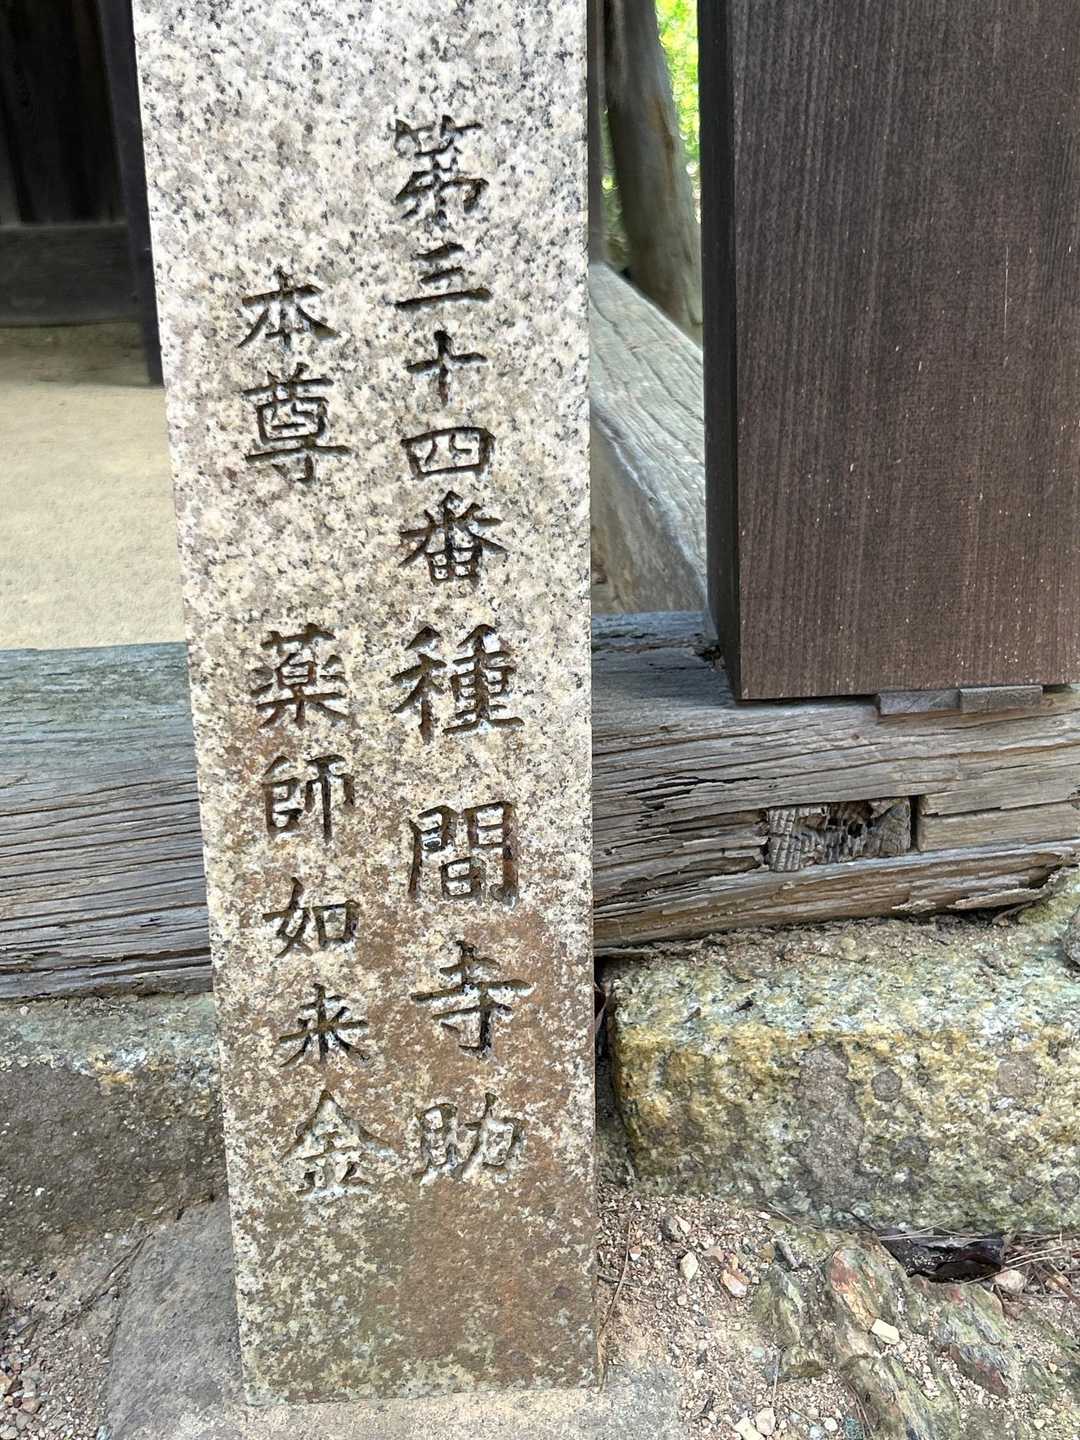 第三十四番種間寺助
本尊 薬師如来金